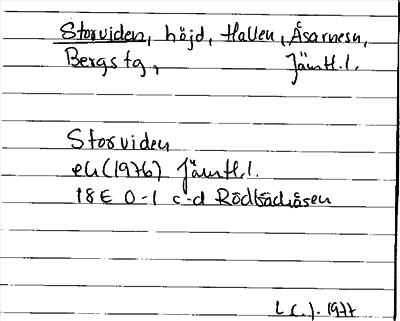 Storviden, höjd, Hallen, Åsarnesn,
Bergs tg, Jämtl.l.
Storviden
ek (1976) Jämtl.l.
18E 0-1 c-d Rödbäcksåsen
1977